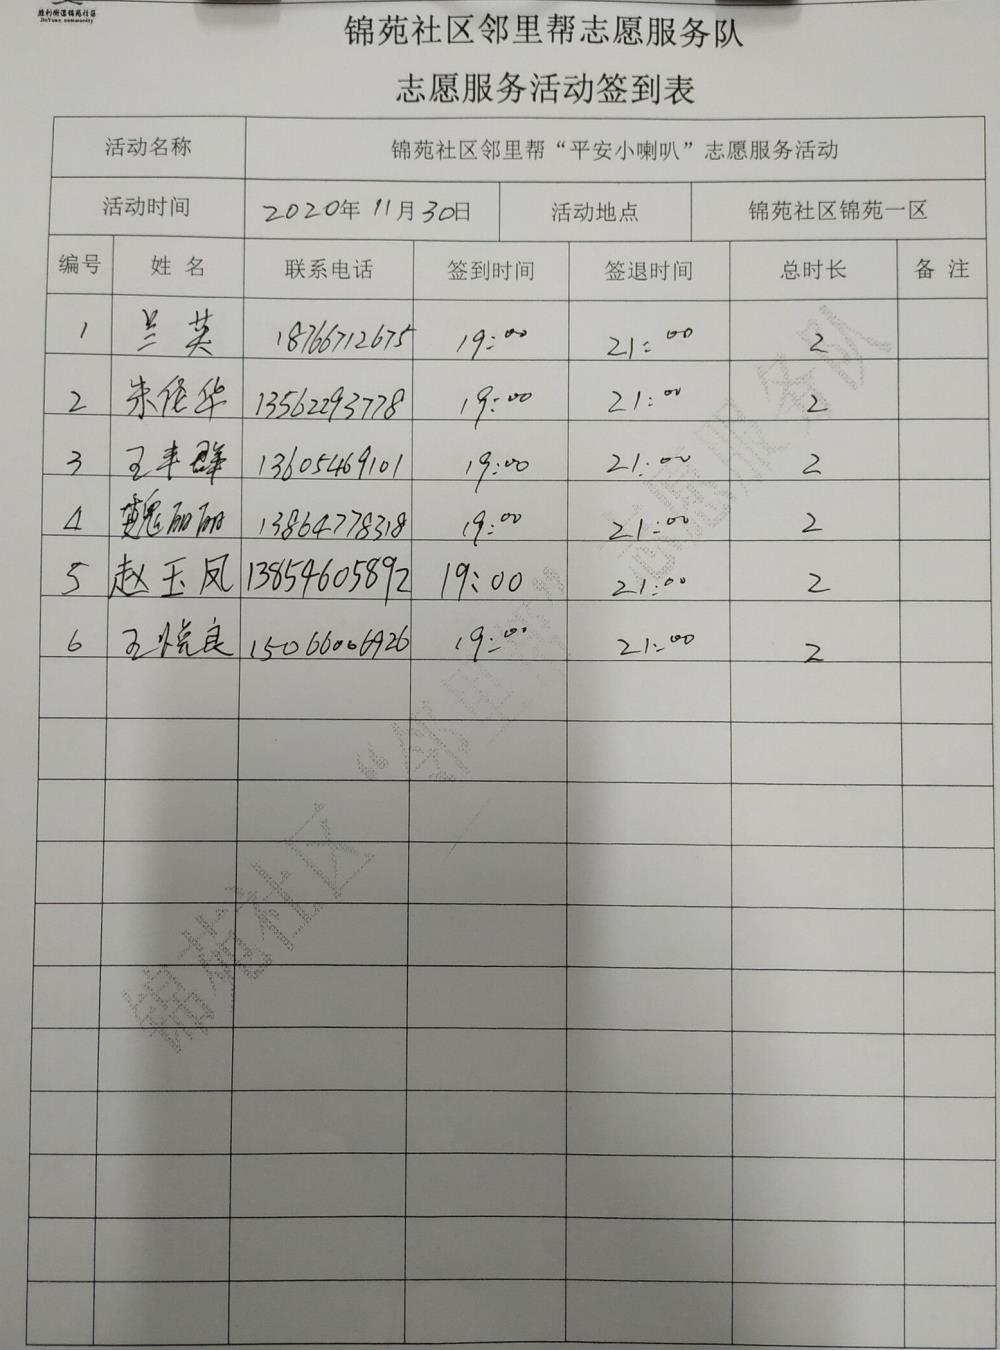 胜利街道锦苑社区
JinYuan community
锦苑社区邻里帮志愿服务队
志愿服务活动签到表
活动名称 锦苑社区邻里帮“平安小喇叭”志愿服务活动
活动时间 2020年 11月30日 活动地点 锦苑社区锦苑一区
编号 姓 名 联系电话 签到时间 签退时间 总时长 备 注
1 兰英 18766712675 19:00 21:00 2
2 朱俊华 13562293778 19:00 21:00 2
3 王丰群 13605469101 19:00 21:00 2
4 魏丽丽 13864778318 19:00 21:00 2
5 赵玉凤 13854605892 19:00 21:00 2
6 王悦良 15066006926 19:00 21:00 2
锦苑社区“邻里帮”志愿服务队